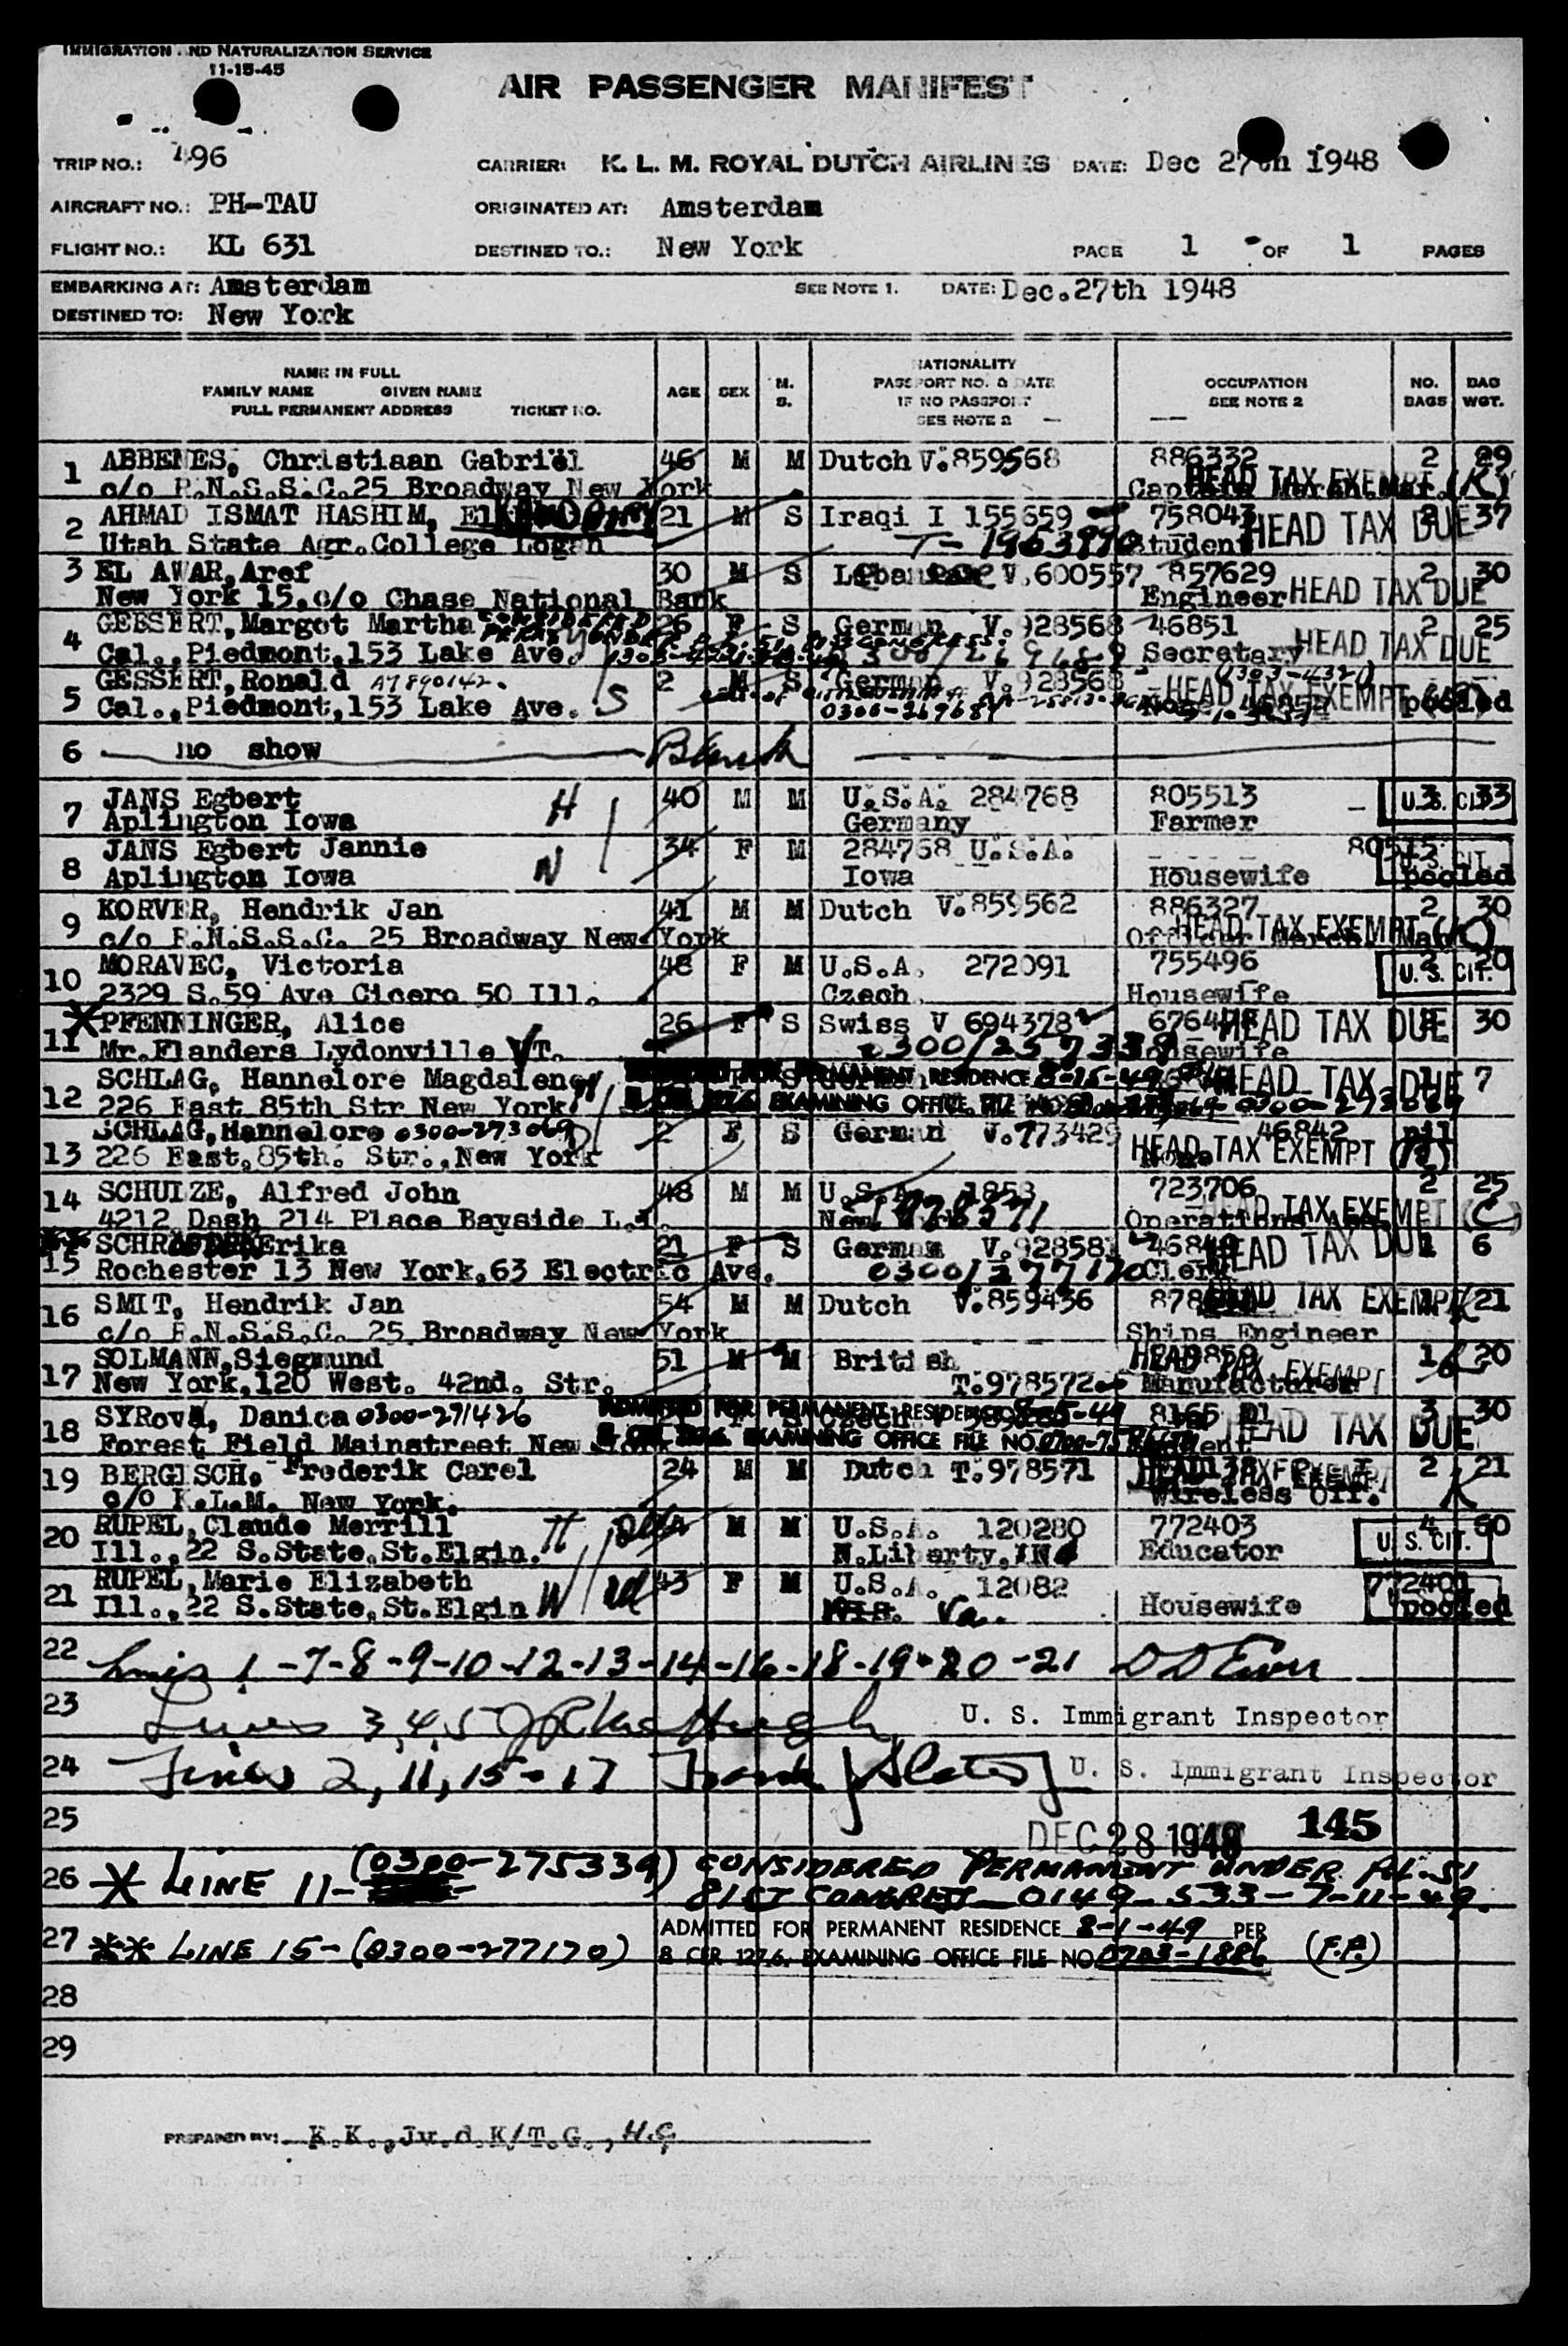 IMMIGRATION AND NATURALIZATION SERVICE
11-15-45
AIR PASSENGER MANIFEST
TRIP NO.: 496 CARRIER: K. L. M. ROYAL DUTCH AIRLINES DATE: Dec 27th 1948
AIRCRAFT NO.: PH-TAU ORIGINATED AT: Amsterdam
FLIGHT NO.: KL 631 DESTINED TO.: New York PAGE 1 OF 1 PAGES
EMBARKING AT: Amsterdam SEE NOTE 1. DATE: Dec.27th 1948
DESTINED TO: New York
NAME IN FULL
FAMILY NAME GIVEN NAME
FULL PERMANENT ADDRESS TICKET NO.
AGE SEX M. S.
NATIONALITY
PASSPORT NO. & DATE
IF NO PASSPORT
SEE NOTE 2
OCCUPATION
SEE NOTE 2
NO. BAGS BAG WGT.
1 ABBENES, Christiaan Gabriël 46 M M Dutch V.859568 886332 2 29
c/o R.N.S.S.C.25 Broadway New York HEAD TAX EXEMPT (K)
2 AHMAD ISMAT HASHIM, 21 M S Iraqi I 155659 758043 HEAD TAX DUE 37
Utah State Agr.College Logan T-1963990 Student
3 EL AWAR,Aref 30 M S V.600557 857629 2 30
New York 15,c/o Chase National Bank Engineer HEAD TAX DUE
4 GESSERT,Margot Martha 26 F S German V.928568 46851 2 25
Cal.,Piedmont,153 Lake Ave. Secretary HEAD TAX DUE
5 GESSERT,Ronald A7890142. 2 M S German V.928568
Cal.,Piedmont,153 Lake Ave. S HEAD TAX EXEMPT pooled
6 no show Blank
7 JANS Egbert H 40 M M U.S.A. 284768 805513 3 33
Aplington Iowa Germany Farmer U.S. CIT.
8 JANS Egbert Jannie 34 F M 284768 U.S.A. 80515
Aplington Iowa W Iowa Housewife U.S. CIT. pooled
9 KORVER, Hendrik Jan 41 M M Dutch V.859562 886327 2 30
c/o R.N.S.S.C. 25 Broadway New York HEAD TAX EXEMPT
10 MORAVEC, Victoria 48 F M U.S.A. 272091 755496 2 20
2329 S.59 Ave Cicero 50 Ill. Czech. Housewife U.S. CIT.
11 PFENNINGER, Alice 26 F S Swiss V 694378 HEAD TAX DUE 30
Mr.Flanders Lydonville VT. Housewife
12 SCHLAG, Hannelore Magdalene PERMANENT RESIDENCE 8-15-49 HEAD TAX DUE 7
226 East 85th Str New York EXAMINING OFFICE
13 SCHLAG,Hannelore 0300-273069 2 F S German V.773429 46842 nil
226 East.85th. Str.,New York HEAD TAX EXEMPT
14 SCHULZE, Alfred John 48 M M U.S.A. 1853 723706 2 25
4212 Dash 214 Place Bayside L.I. HEAD TAX EXEMPT (C)
15 Erika 21 F S German V.928581 HEAD TAX DUE 1 6
Rochester 13 New York,63 Electric Ave. 0300/277170 Clerk
16 SMIT, Hendrik Jan 54 M M Dutch V.859436 HEAD TAX EXEMPT 21
c/o R.N.S.S.C. 25 Broadway New York Ships Engineer
17 SOLMANN,Siegmund 51 M M British 1 20
New York,120 West. 42nd. Str. T.978572 Manufacturer HEAD TAX EXEMPT
18 SYRová, Danica 0300-271426 ADMITTED FOR PERMANENT RESIDENCE 3 30
Forest Field Mainstreet New York EXAMINING OFFICE FILE NO. HEAD TAX DUE
19 BERGISCH, Frederik Carel 24 M M Dutch T.978571 2 21
c/o K.L.M. New York. Wireless Off. K
20 RUPEL,Claude Merrill H M M U.S.A. 120280 772403 4 60
Ill.,22 S.State,St.Elgin. N.Liberty, IND Educator U.S. CIT.
21 RUPEL,Marie Elizabeth 43 F M U.S.A. 12082
Ill.,22 S.State,St.Elgin W Va. Housewife pooled
22 Lines 1-7-8-9-10-12-13-14-16-18-19-20-21
23 Lines 3,4,5 U. S. Immigrant Inspector
24 Lines 2,11,15-17 U. S. Immigrant Inspector
25 DEC 28 1948 145
26 * LINE 11- (0300-275339) CONSIDERED PERMANENT UNDER P.L.51
81ST CONGRESS 0149-533-7-11-49.
27 ** LINE 15-(0300-277170) ADMITTED FOR PERMANENT RESIDENCE 8-1-49 PER
8 CFR 127.6. EXAMINING OFFICE FILE NO. 0703-1886 (F.P.)
28
29
PREPARED BY: K.K.,Jv.d.K/T.G.,H.G